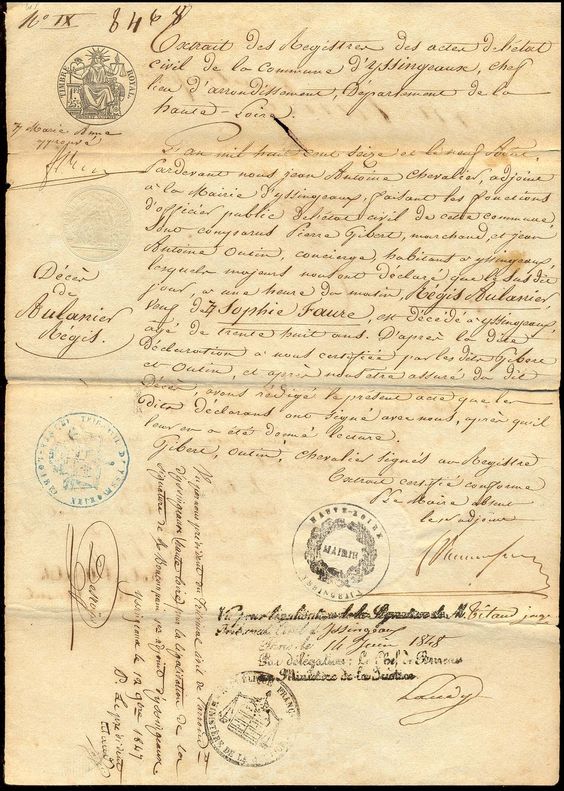 No IX 8468
Extrait des Registres des actes de l'état
civil de la Commune d'yssingeaux, chef
lieu d'arrondissement, Département de la
haute-Loire.
TIMBRE ROYAL
Marie Anne
L'an mil huit cent seize et le neuf
Pardevant nous jean Antoine Chevalier, adjoint
à la Mairie d'yssingeaux, faisant les fonctions
d'officier public de l'état civil de cette commune,
Sont comparus Pierre Gibert, marchand, et jean
Antoine Outin, concierge, habitant à yssingeaux,
lesquels majeurs nous ont déclaré que le susdit
jour, à une heure du matin, Régis Aulanier
veuf de Sophie Faure, est décédé à yssingeaux,
agé de trente huit ans. D'après la dite
Déclaration à nous certifiée par les dits Gibert
et Outin, et après nous être assuré du dit
Décès, avons rédigé le présent acte que les
dits déclarans ont signé avec nous, après qu'il
leur en a été donné lecture.
Gibert, Outin, chevalier signés au Registre
Extrait certifié conforme
Le Maire absent
le 1er adjoint
Décès
de
Aulanier
Régis.
HAUTE-LOIRE
MAIRIE
YSSINGEAUX
Vu par nous président du Tribunal civil de
d'yssingeaux haute loire pour la légalisation de la
signature de M. adjoint d'yssingeaux
yssingeaux le 12 1847
Le président
Vu pour légalisation de la Signature de M. juge
Yssingeaux
14 Juin 1848
Par délégation: Le Chef de Bureau
au Ministère de la Justice